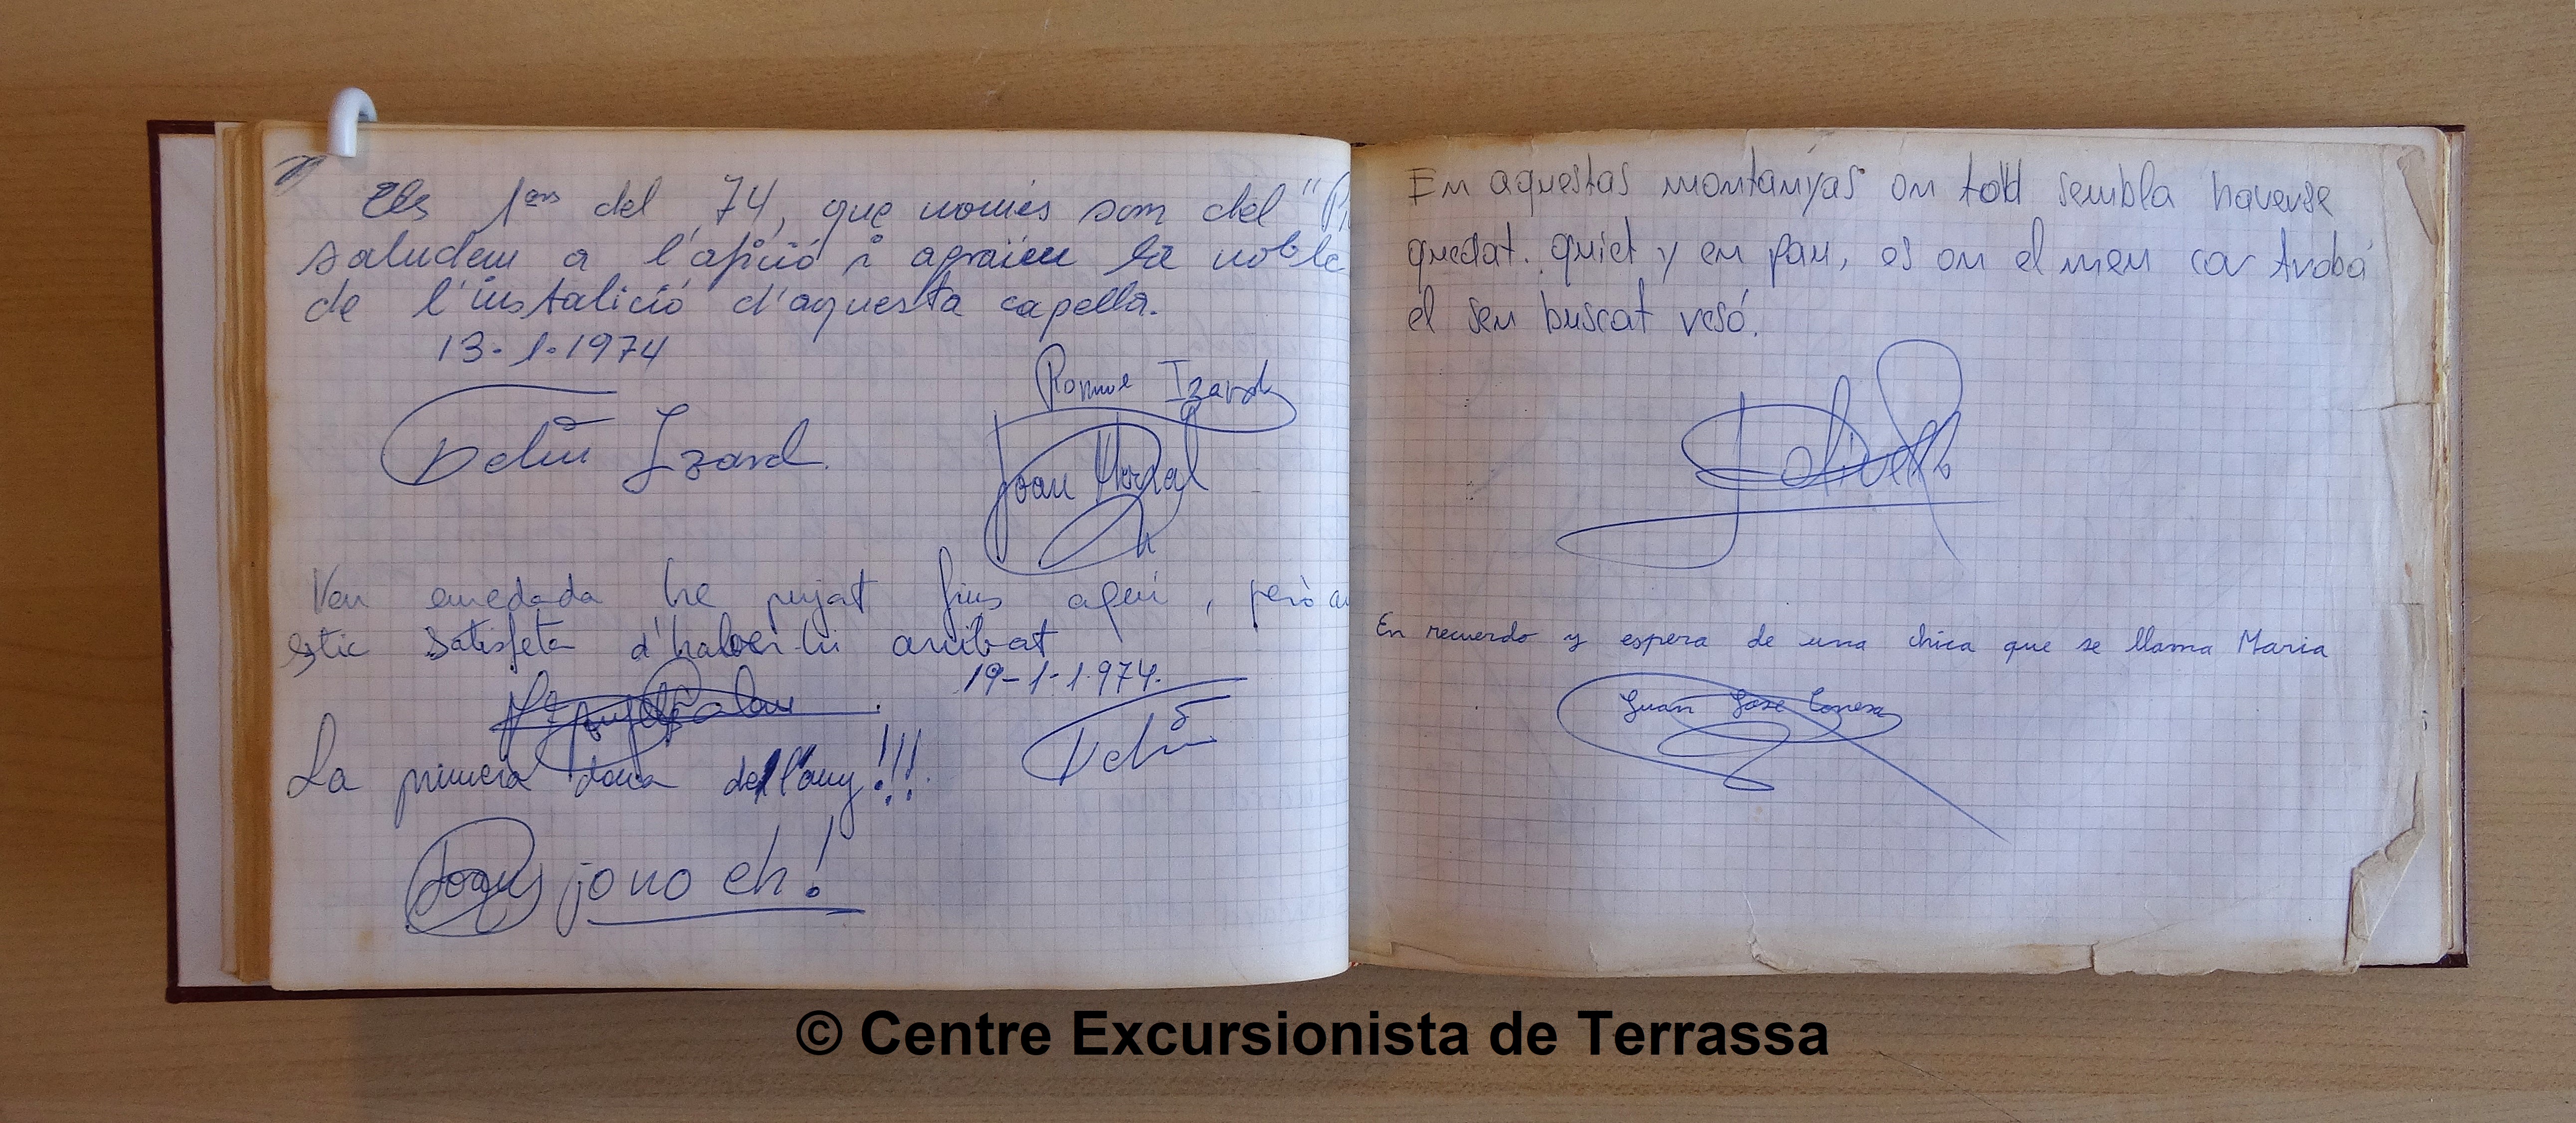 Els 1ers del 74, que només som del "P
saludem a l'afició i agraïem la noble
de l'instalició d'aquesta capella.
13-1-1974
Romue Izard
Delfí Izard
Joan
Ven enredada he pujat fins aquí, però
estic satisfeta d'haber-hi arribat
19-1-1974.
Delfí
La primera dona del l'any!!!
jo no eh!
En aquestas montanyas on tott sembla haverse
quedat. quiet y en pau, es on el meu cor trobá
el seu buscat vesó.
En recuerdo y espera de una chica que se llama Maria
Juan Jose Conesa
© Centre Excursionista de Terrassa